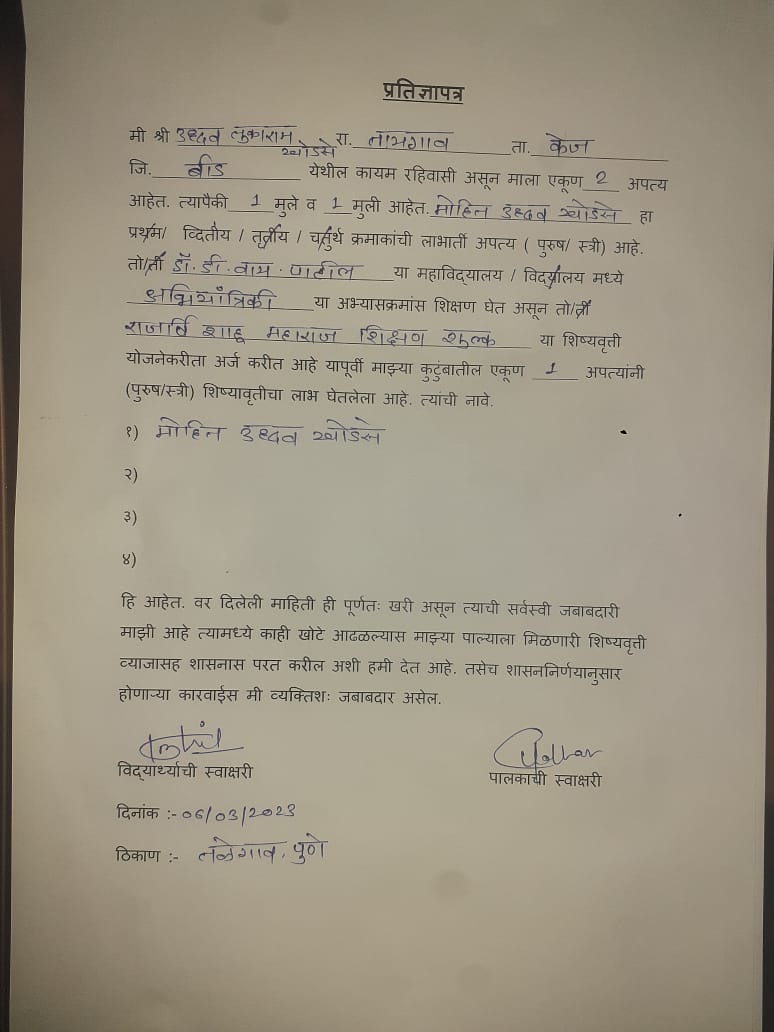 प्रतिज्ञापत्र
मी श्री उध्दव तुकाराम खोडसे रा. नाभगाव ता. केज
जि. बीड येथील कायम रहिवासी असून माला एकूण 2 अपत्य
आहेत. त्यापैकी 1 मुले व 1 मुली आहेत. मोहित उध्दव खोडसे हा
प्रथम/ व्दितीय / तृतीय / चतुर्थ क्रमाकांची लाभार्ती अपत्य ( पुरुष/ स्त्री) आहे.
तो/ती डॉ. डी. वाय. पाटील या महाविद्यालय / विद्यालय मध्ये
अभियाँत्रिकी या अभ्यासक्रमांस शिक्षण घेत असून तो/ती
राजर्षि शाहू महाराज शिक्षण शुल्क या शिष्यवृत्ती
योजनेकरीता अर्ज करीत आहे यापूर्वी माझ्या कुटुंबातील एकूण 1 अपत्यांनी
(पुरुष/स्त्री) शिष्यावृतीचा लाभ घेतलेला आहे. त्यांची नावे.
१) मोहित उध्दव खोडसे
२)
३)
४)
हि आहेत. वर दिलेली माहिती ही पूर्णतः खरी असून त्याची सर्वस्वी जबाबदारी
माझी आहे त्यामध्ये काही खोटे आढळल्यास माझ्या पाल्याला मिळणारी शिष्यवृत्ती
व्याजासह शासनास परत करील अशी हमी देत आहे. तसेच शासननिर्णयानुसार
होणाऱ्या कारवाईस मी व्यक्तिशः जबाबदार असेल.
विद्यार्थ्याची स्वाक्षरी पालकाची स्वाक्षरी
दिनांक :- 06/03/2023
ठिकाण :- तळेगाव, पुणे